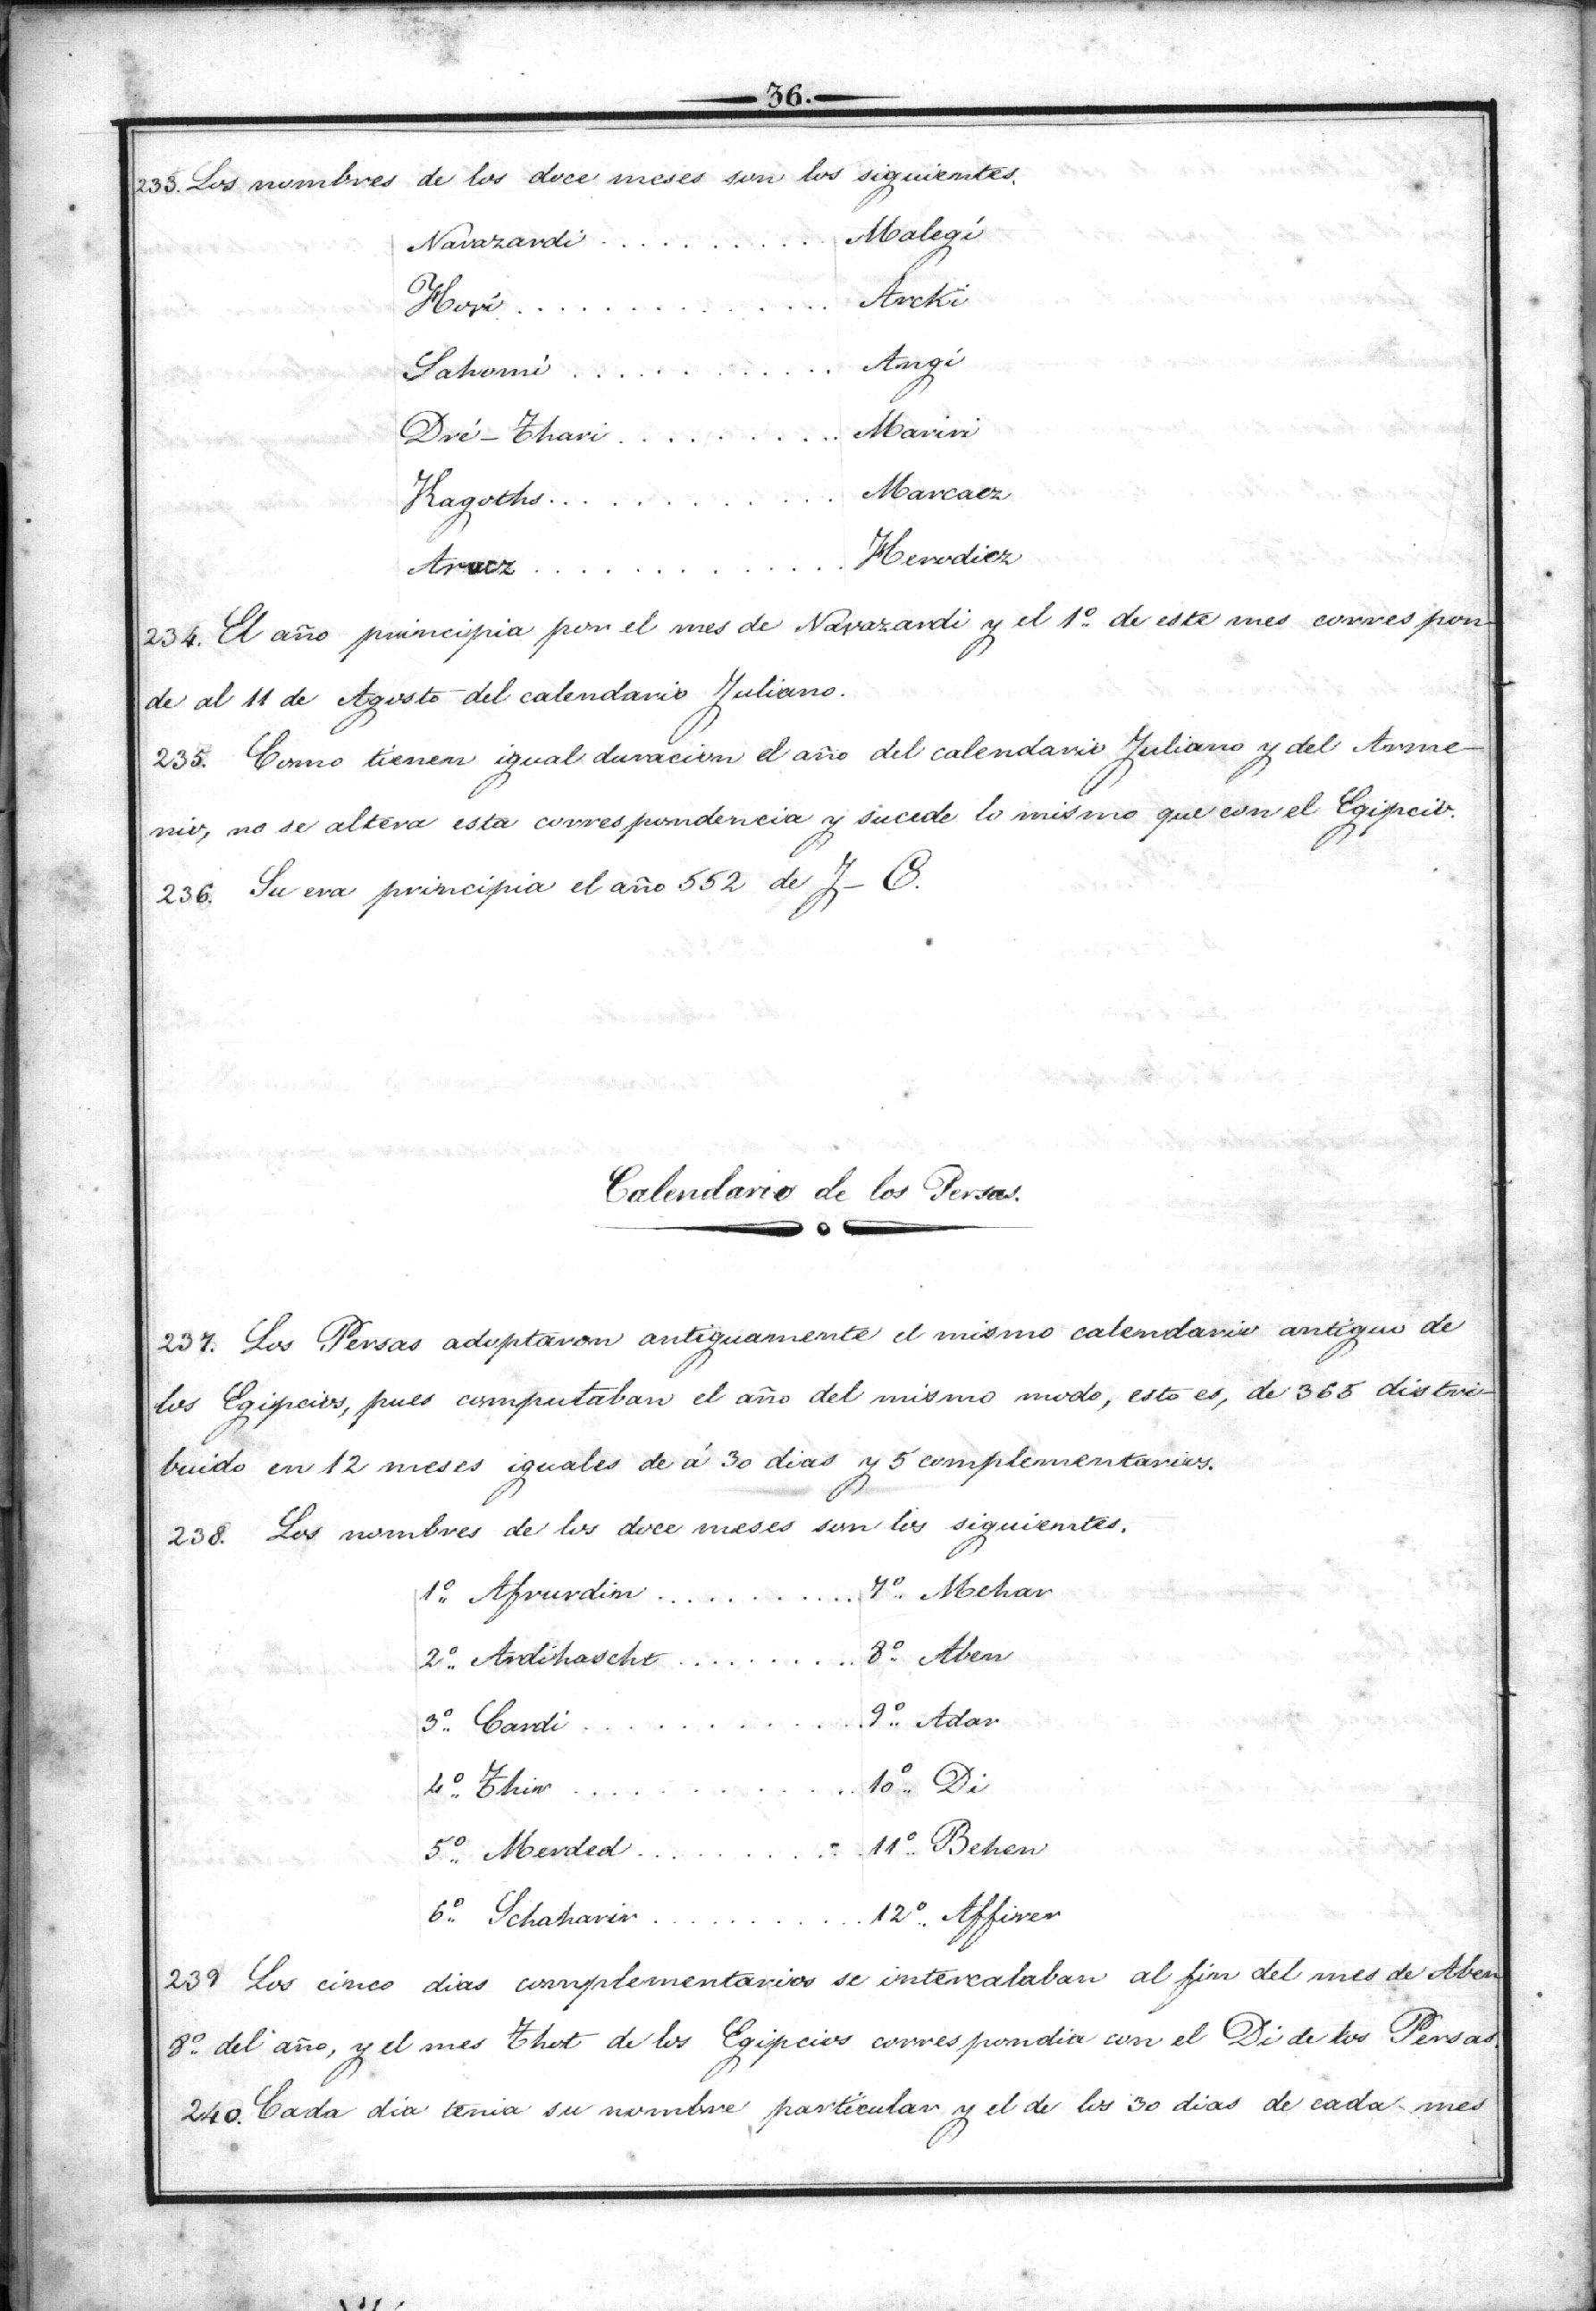 36.
233. Los nombres de los doce meses son los siguientes.
Navazardi . . . . . . . . . Malegí
Horí . . . . . . . . . . . . Arcki
Sahomí . . . . . . . . . . Angí
Dré-Thari . . . . . . . . . Mariri
Kagoths . . . . . . . . . . . Marcacz
Aracz . . . . . . . . . . . . Herodicz
234. El año principia por el mes de Navazardi y el 1º de este mes correspon-
de al 11 de Agosto del calendario Juliano.
235. Como tienen igual duracion el año del calendario Juliano y del Arme-
nio, no se altera esta correspondencia y sucede lo mismo que con el Egipcio.
236. Su era principia el año 552 de J-C.
Calendario de los Persas.
237. Los Persas adoptaron antiguamente el mismo calendario antiguo de
los Egipcios, pues computaban el año del mismo modo, esto es, de 365 distri-
buido en 12 meses iguales de á 30 dias y 5 complementarios.
238. Los nombres de los doce meses son los siguientes.
1º Afrurdin . . . . . . . . . 7º Mehar
2º Ardihascht . . . . . . . . 8º Aben
3º Cardi . . . . . . . . . . . 9º Adar
4º Thir . . . . . . . . . . . 10º Di
5º Merded . . . . . . . . . 11º Behen
6º Schaharir . . . . . . . . . 12º Affirer
239 Los cinco dias complementarios se intercalaban al fin del mes de Aben
8º del año, y el mes Thot de los Egipcios correspondia con el Di de los Persas.
240. Cada dia tenia su nombre particular y el de los 30 dias de cada mes